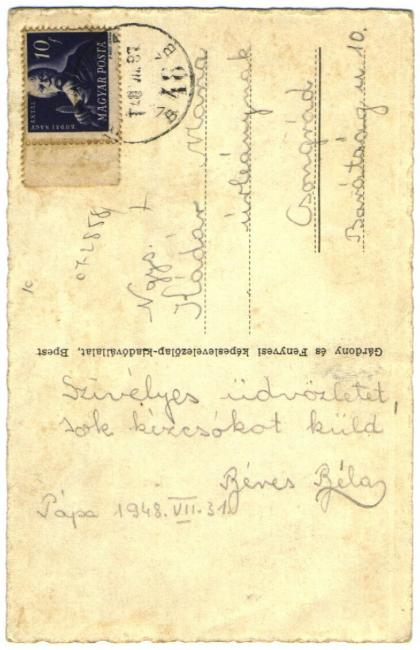 10f
MAGYAR POSTA
BUDAI NAGY
ANTAL
Ngys.
Kádár Mária
úrleánynak
Csongrád
Barátság u 10.
Gárdony és Fenyvesi képeslevelezőlap-kiadóvállalat, Bpest
Szívélyes üdvözletet,
sok kézcsókot küld
Béla
Pápa 1948. VII. 31.